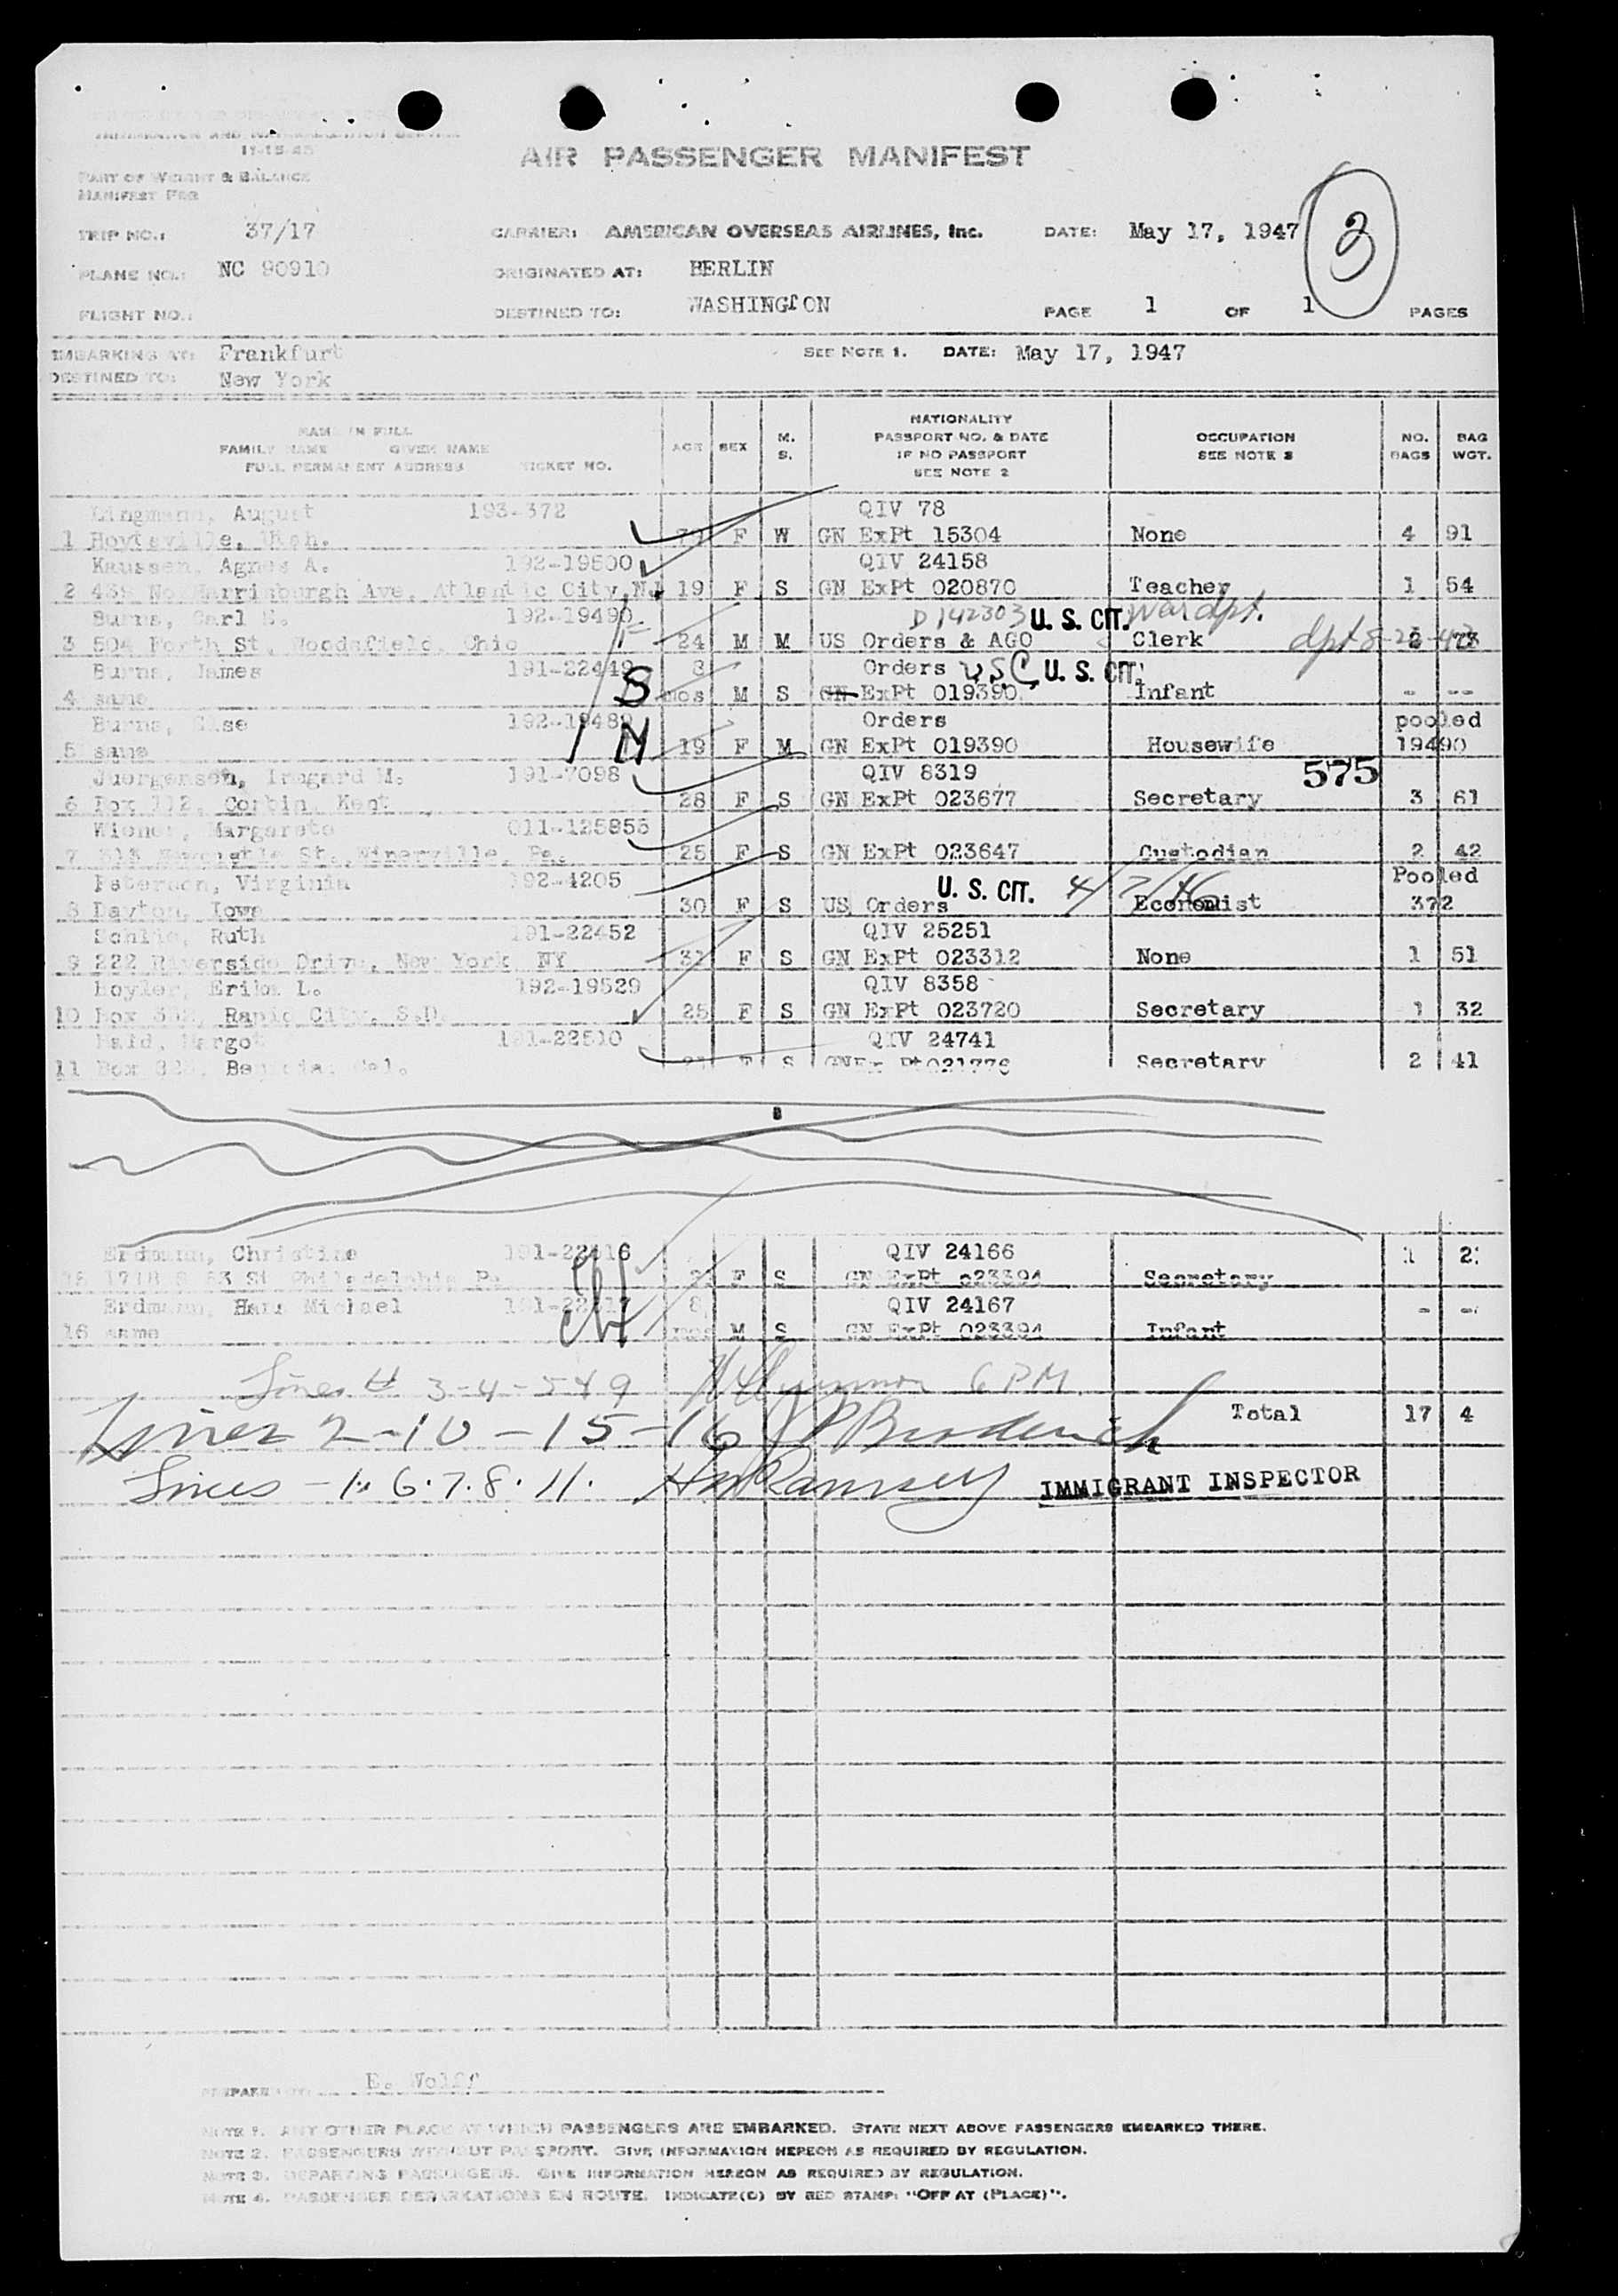 IMMIGRATION AND NATURALIZATION SERVICE
11-15-45
AIR PASSENGER MANIFEST
PART OF WEIGHT & BALANCE
MANIFEST FOR
TRIP NO.: 37/17 CARRIER: AMERICAN OVERSEAS AIRLINES, Inc. DATE: May 17, 1947
3
PLANE NO.: NC 90910 ORIGINATED AT: BERLIN
FLIGHT NO.: DESTINED TO: WASHINGTON PAGE 1 OF 1 PAGES
EMBARKING AT: Frankfurt SEE NOTE 1. DATE: May 17, 1947
DESTINED TO: New York
NAME IN FULL
FAMILY NAME GIVEN NAME
FULL PERMANENT ADDRESS TICKET NO.
AGE SEX M. S.
NATIONALITY
PASSPORT NO. & DATE
IF NO PASSPORT
SEE NOTE 2
OCCUPATION
SEE NOTE 3
NO. BAGS
BAG WGT.
Lingmann, August 193-372 QIV 78
1 Hoytsville, Utah. F W GN ExPt 15304 None 4 91
Kaussen, Agnes A. 192-19500 QIV 24158
2 439 No Harrinburgh Ave, Atlantic City, NJ 19 F S GN ExPt 020870 Teacher 1 54
Burns, Carl E. 192-19490 D 142303 U. S. CIT. War dpt.
3 504 Forth St, Woodsfield, Ohio 24 M M US Orders & AGO Clerk 2 73
Burns, James 191-22449 8 Orders USC U. S. CIT.
4 same S mos M S GN ExPt 019390 Infant - --
Burns, Else 192-19489 Orders pooled
5 same M 19 F M GN ExPt 019390 Housewife 19490
Juergensen, Irmgard M. 191-7098 QIV 8319 575
6 Box 112, Corbin, Kent 28 F S GN ExPt 023677 Secretary 3 61
Wiener, Margarete 011-125855
7 313 Newcastle St., Minerville, Pa. 25 F S GN ExPt 023647 Custodian 2 42
Peterson, Virginia 192-4205 U. S. CIT. 4/2/46 Pooled
8 Dayton, Iowa 30 F S US Orders Economist 372
Schlie, Ruth 191-22452 QIV 25251
9 222 Riverside Drive, New York NY 31 F S GN ExPt 023312 None 1 51
Hoyler, Erika L. 192-19529 QIV 8358
10 Box 332, Rapid City, S.D. 25 F S GN ExPt 023720 Secretary 1 32
Hald, Margot 191-22510 QIV 24741
11 Box 325, Benicia, Cal. F S GN Ex Pt 021776 Secretary 2 41
Erdmann, Christine 191-22416 QIV 24166 1 2
15 1718 S 63 St Philadelphia Pa. F S GN ExPt 023394 Secretary
Erdmann, Hans Michael 191-22417 8 QIV 24167 - --
16 same mos M S GN ExPt 023394 Infant
Lines # 3-4-5 & 9 6 PM.
Lines 2-10-15-16 JP Broderick Total 17 4
Lines - 1. 6. 7. 8. 11. HM Ramsey IMMIGRANT INSPECTOR
PREPARED BY: E. Wolff
NOTE 1. ANY OTHER PLACE AT WHICH PASSENGERS ARE EMBARKED. STATE NEXT ABOVE PASSENGERS EMBARKED THERE.
NOTE 2. PASSENGERS WITHOUT PASSPORT. GIVE INFORMATION HEREON AS REQUIRED BY REGULATION.
NOTE 3. DEPARTING PASSENGERS. GIVE INFORMATION HEREON AS REQUIRED BY REGULATION.
NOTE 4. PASSENGER DEBARKATIONS EN ROUTE. INDICATE(D) BY RED STAMP: "OFF AT (PLACE)".